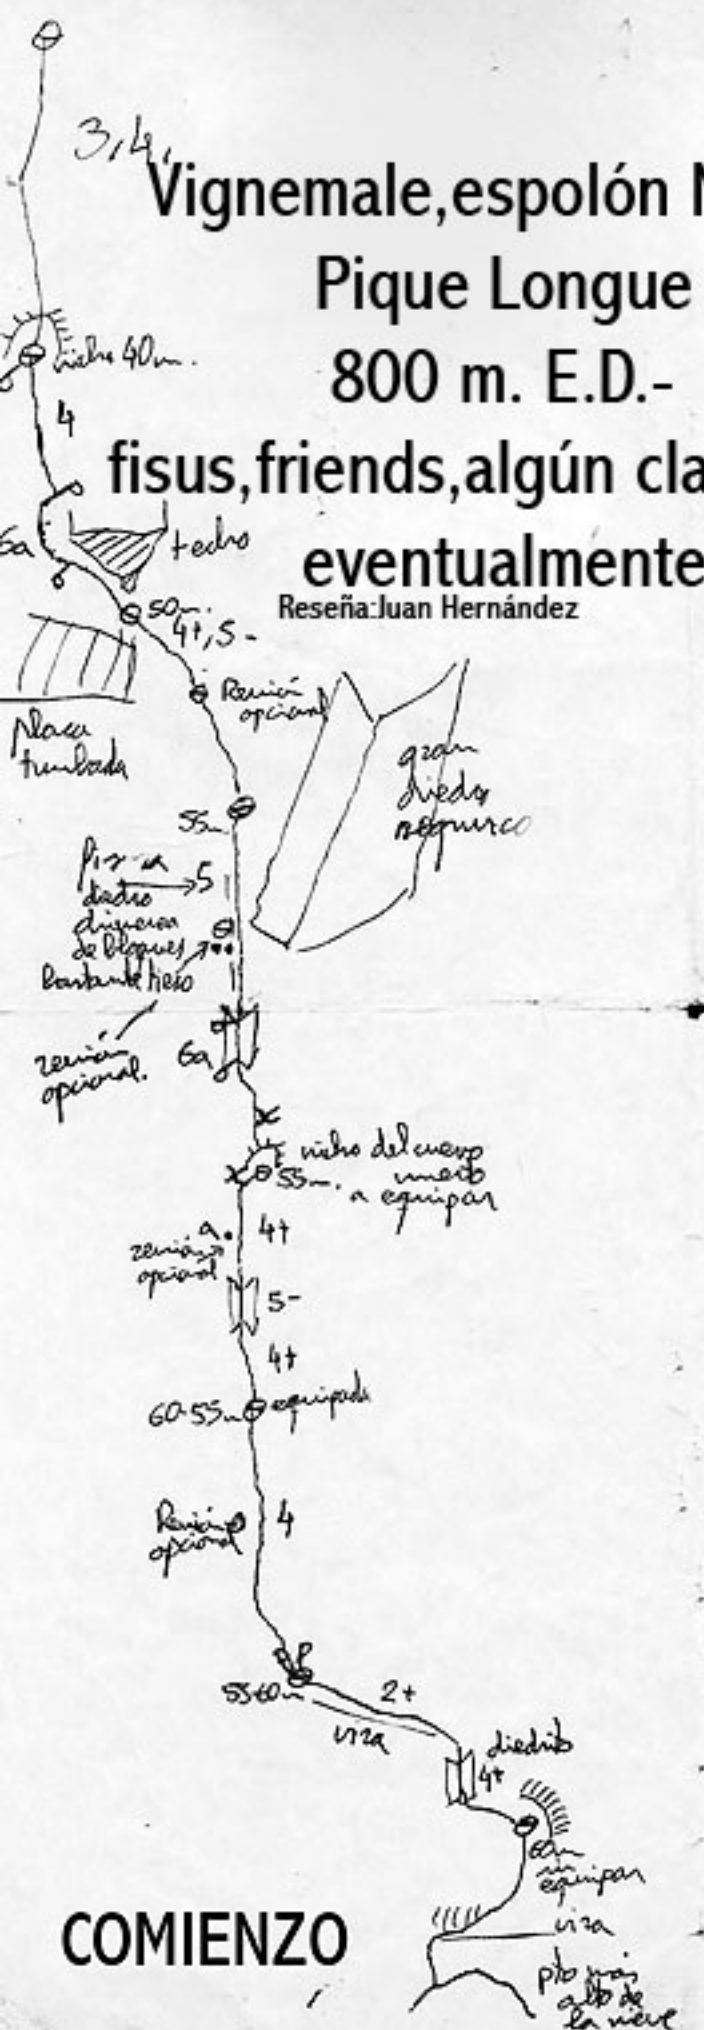 3,4,
Vignemale,espolón N
Pique Longue
800 m. E.D.-
fisus,friends,algún cla
eventualmente
Reseña:Juan Hernández
nicho 40m.
4
6a
techo
50m.
4+,5-
Reunión
opcional
placa
tumbada
gran
diedro
55m
5
diedro
de bloques
reunión
opcional.
6a
nicho del cuervo
muerto
55m.
a equipar
4+
reunión
opcional
5-
4+
60-55m
equipada
Reunión
opcional
4
55-60m
2+
vira
diedrito
4+
60m
sin
equipar
vira
COMIENZO
pto más
alto de
la nieve